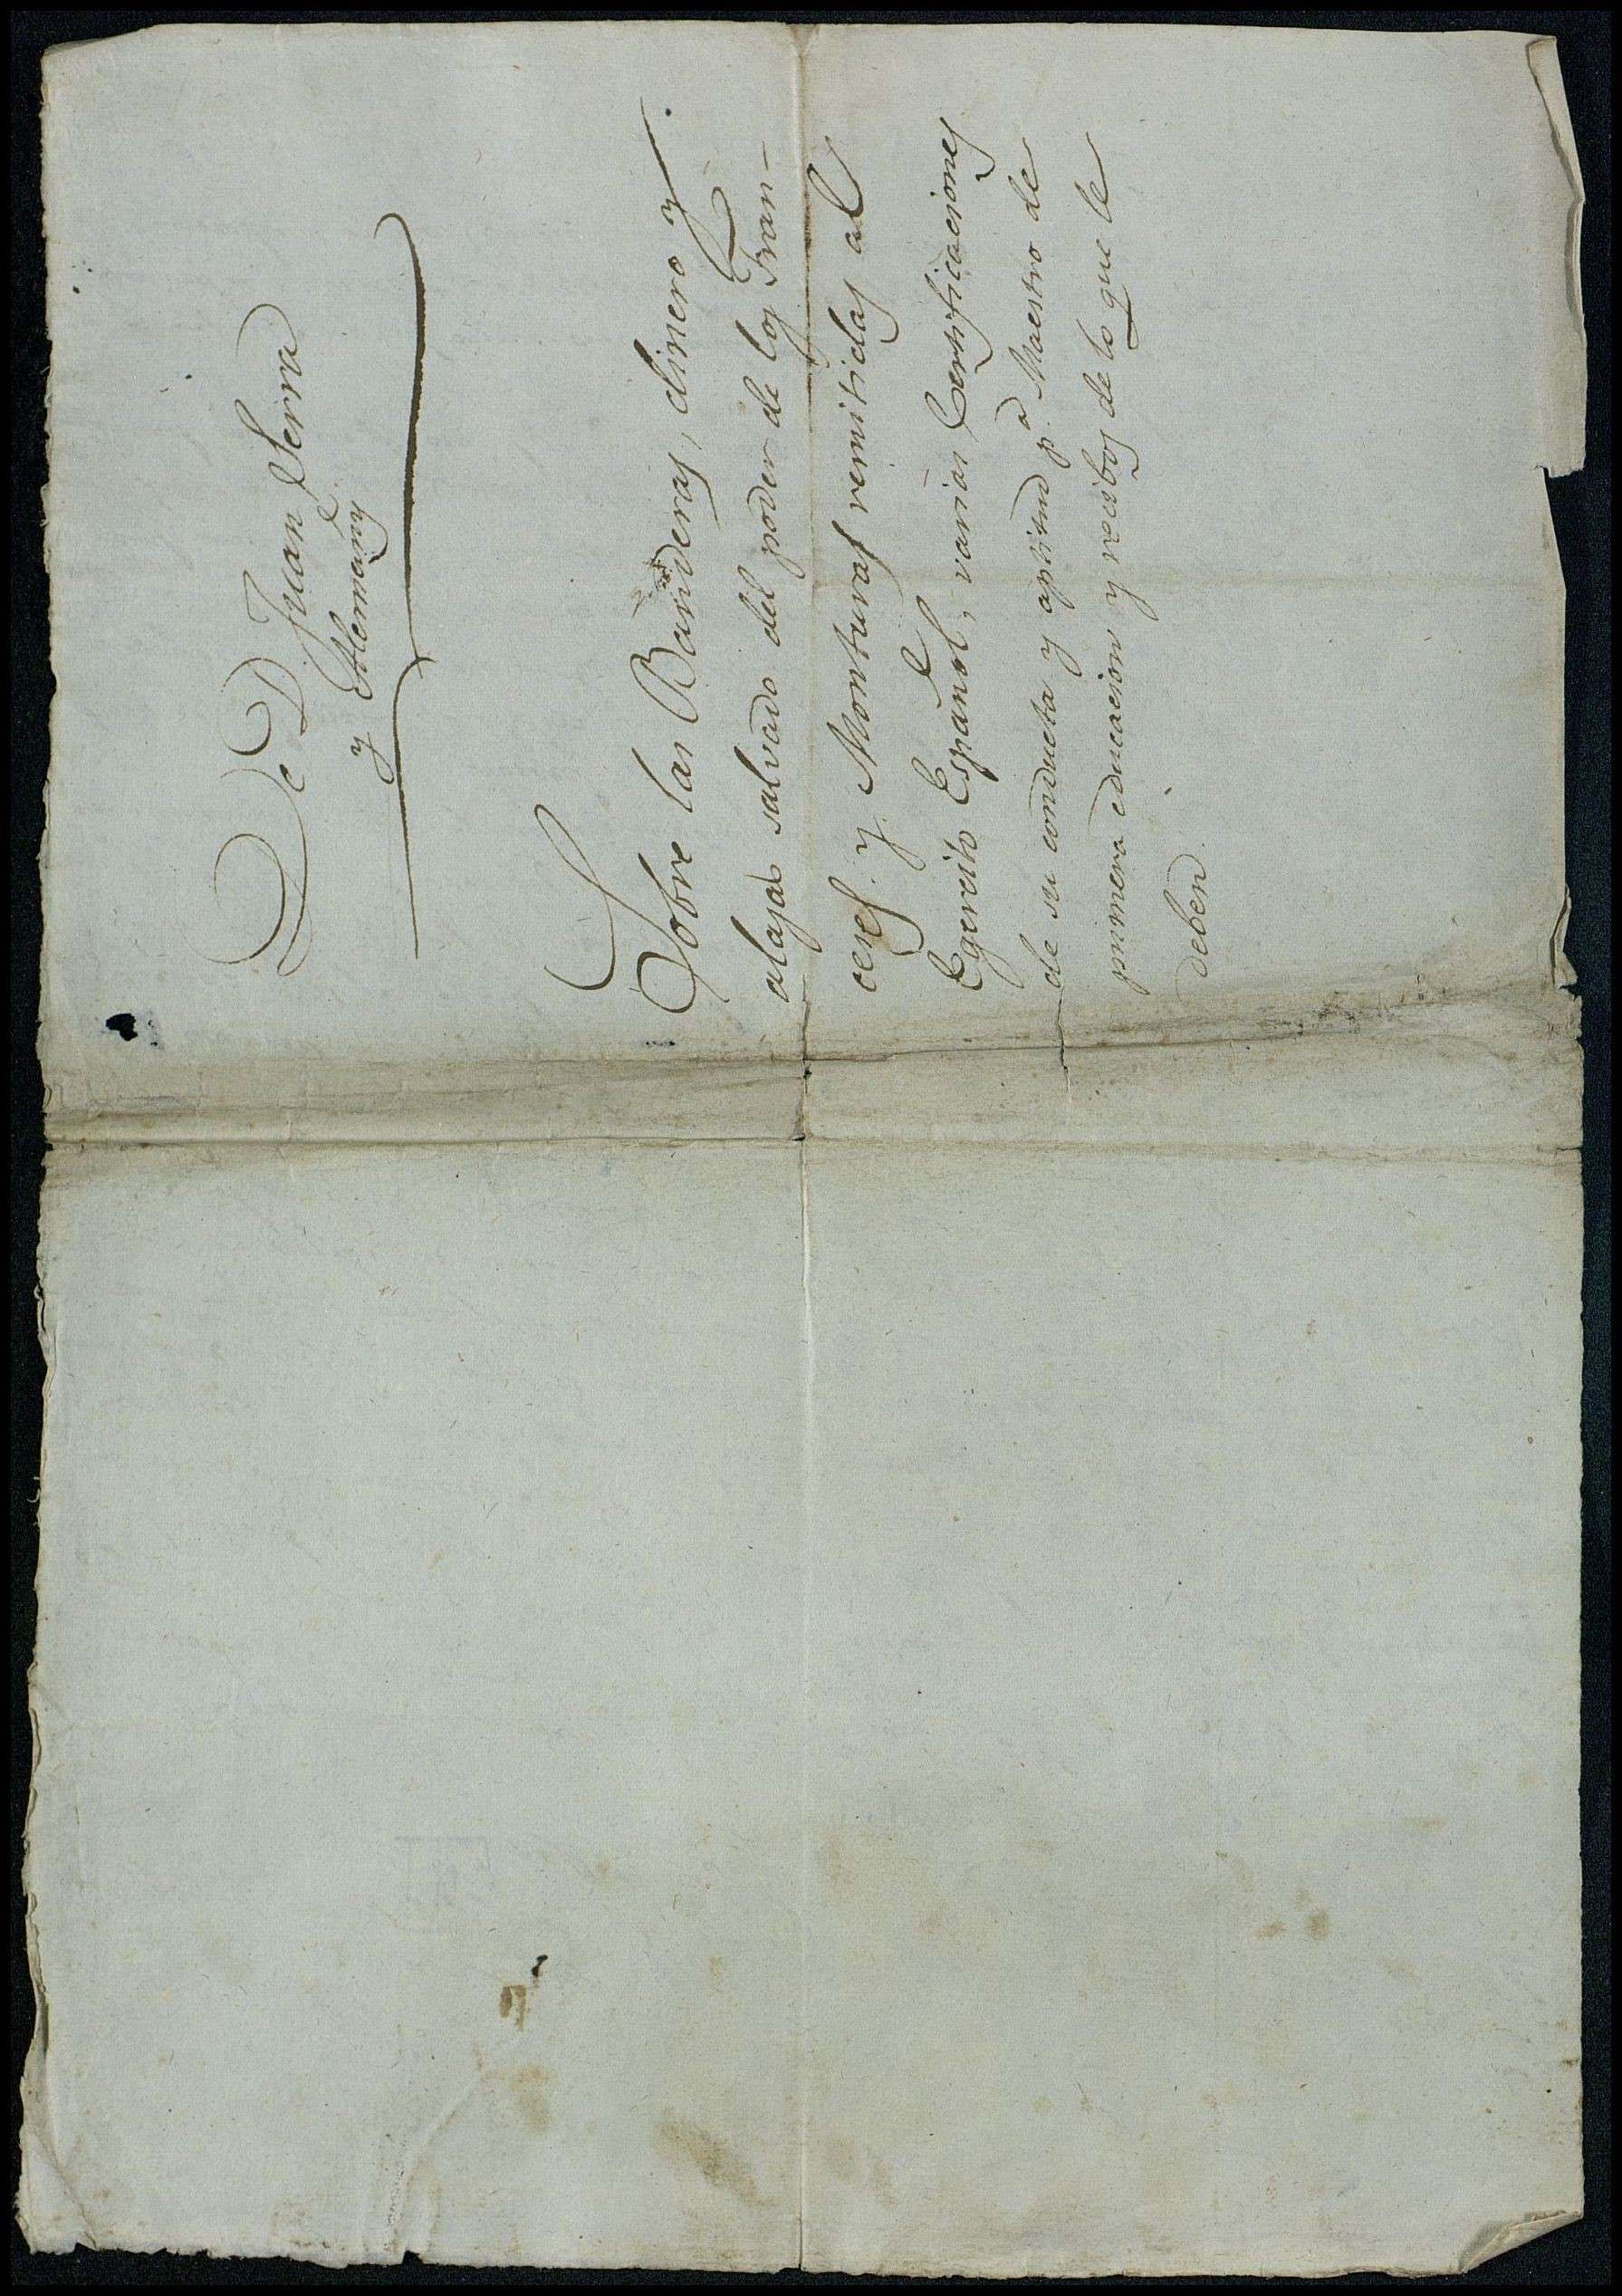 De D. Juan Serra
y Alemañy
Sobre las Banderas, dinero y
alajas salvado del poder de los Fran-
ceses. y Monturas remitidas al
Egercito Español, varias Certificaciones
de su conducta y aptitud p.ª Maestro de
primera educacion y recibos de lo que le
deben